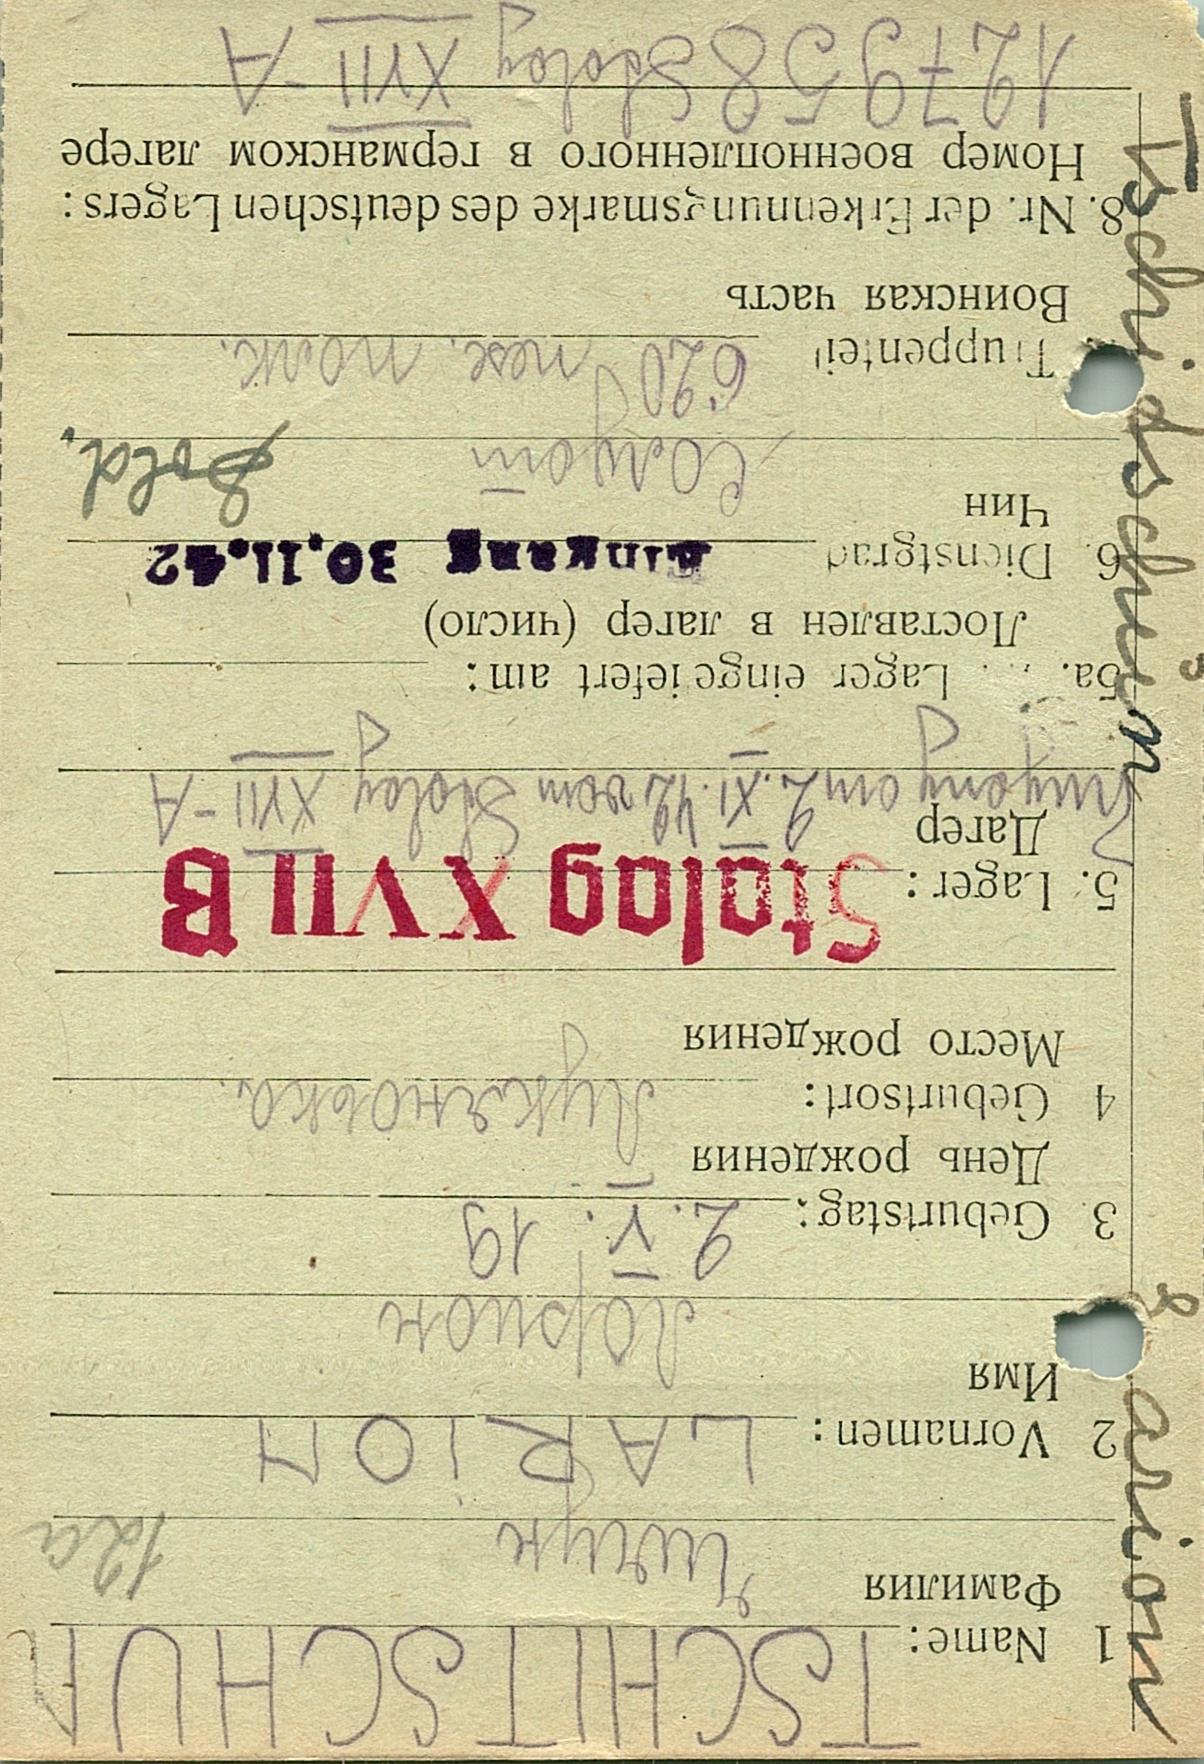 1 Name: TSCHITSCHUN
Фамилия Чичун 12a
2 Vornamen: LARiON
Имя Ларион
3. Geburtstag: 2. V. 19
День рождения
4 Geburtsort: Лукяновка
Место рождения
5. Lager: Stalag XVII B
Лагер
am 2. XI. 42 vom Stalag XVII-A
5a. Lager eingeliefert am:
Поставлен в лагер (число)
6. Dienstgrad Eingang 30.11.42
Чин Солдат Sold.
Truppenteil 620 пех. полк.
Воинская часть
8. Nr. der Erkennungsmarke des deutschen Lagers:
Номер военнопленного в германском лагере
127958 Stalag XVII-A
Larion